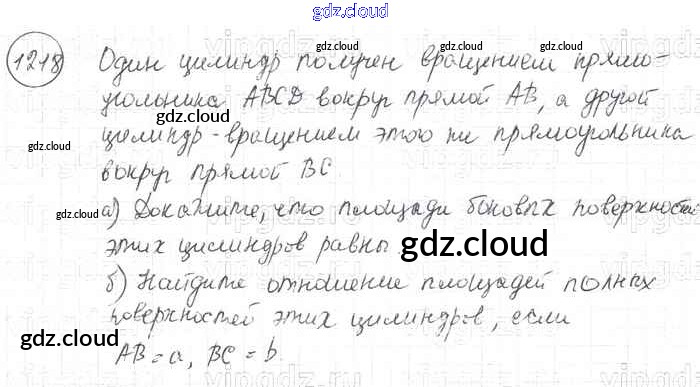 gdz.cloud
1218 Один цилиндр получен вращением прямо-
угольника ABCD вокруг прямой AB, а другой
цилиндр - вращением этого же прямоугольника
вокруг прямой BC.
а) Докажите, что площади боковых поверхностей
этих цилиндров равны
б) Найдите отношение площадей полных
поверхностей этих цилиндров, если
AB = a, BC = b.
gdz.cloud
gdz.cloud
gdz.cloud
gdz.cloud
gdz.cloud
gdz.cloud
gdz.cloud
gdz.cloud
gdz.cloud
gdz.cloud